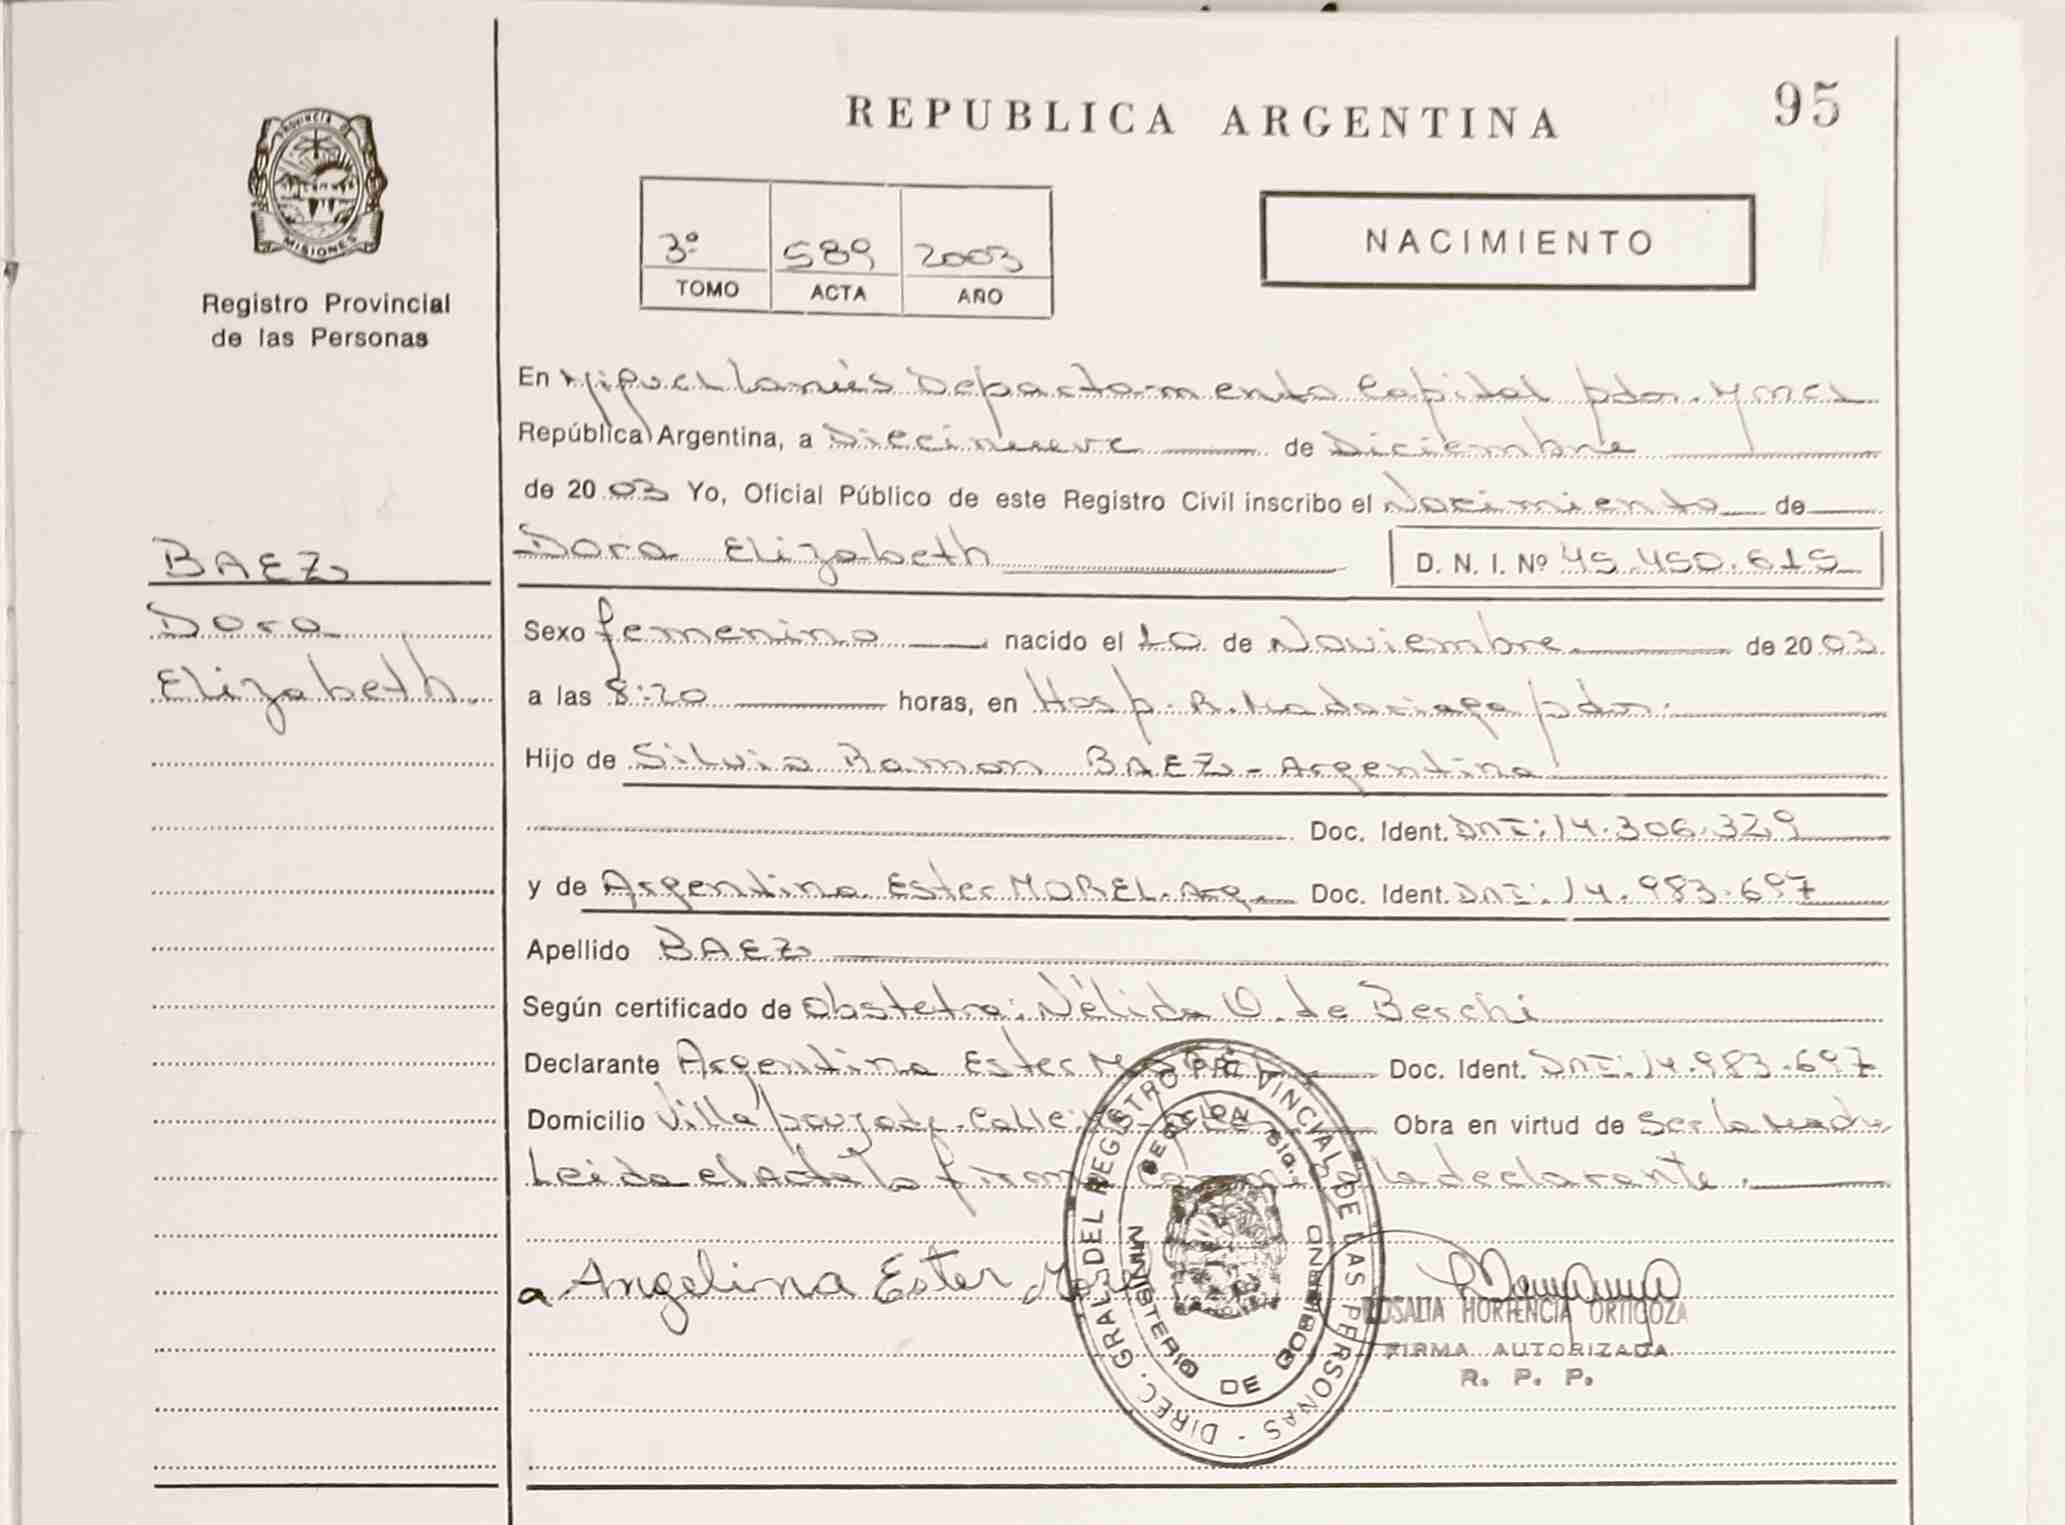 REPUBLICA ARGENTINA
95
PROVINCIA DE
MISIONES
Registro Provincial
de las Personas
3º 589 2003
TOMO ACTA AÑO
NACIMIENTO
En Miguel Lanús Departamento Capital pdas.
República Argentina, a Diecinueve de Diciembre
de 2003 Yo, Oficial Público de este Registro Civil inscribo el Nacimiento de
BAEZ
Dora Elizabeth
D. N. I. Nº 45.450.615
Dora
Elizabeth.
Sexo femenino nacido el 10 de Noviembre de 2003
a las 8:20 horas, en Hosp. R. Madariaga pdas.
Hijo de Silvio Ramon BAEZ - Argentino
Doc. Ident. DNI: 14.306.329
y de Argentina Ester MOREL. Arg. Doc. Ident. DNI: 14.983.697
Apellido BAEZ
Según certificado de obstetra: Nélida O. de Berchi
Declarante Argentina Ester MOREL Doc. Ident. DNI: 14.983.697
Domicilio Villa Calle Obra en virtud de Ser la Madre
Leida el Acta la firma la declarante.
a Angelina Ester Morel
DIREC. GRAL. DEL REGISTRO PROVINCIAL DE LAS PERSONAS -
MINISTERIO DE GOBIERNO
ROSALIA HORTENCIA ORTIGOZA
FIRMA AUTORIZADA
R. P. P.